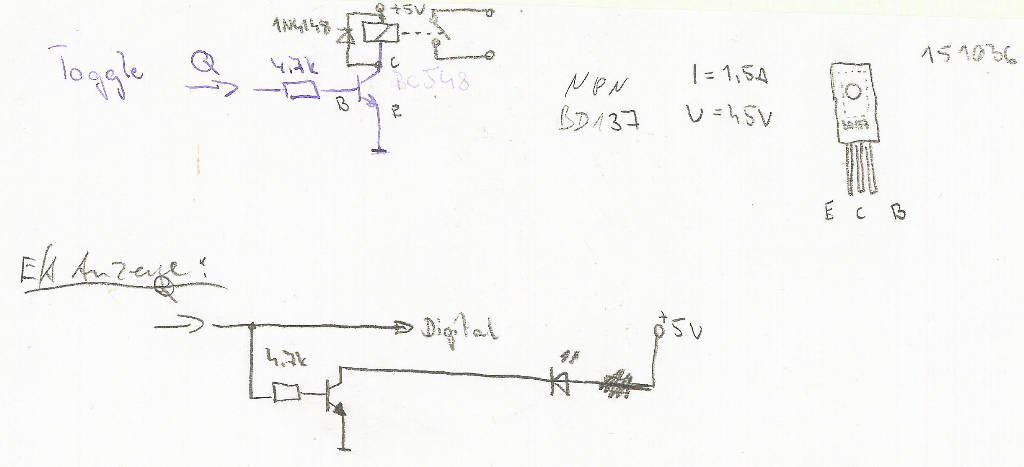 +5V
1N4148
Toggle
Q
4.7k
C
BC548
B
E
NPN
BD137
I = 1,5A
U = 45V
151036
E C B
Q
Digital
4.7k
+
5V